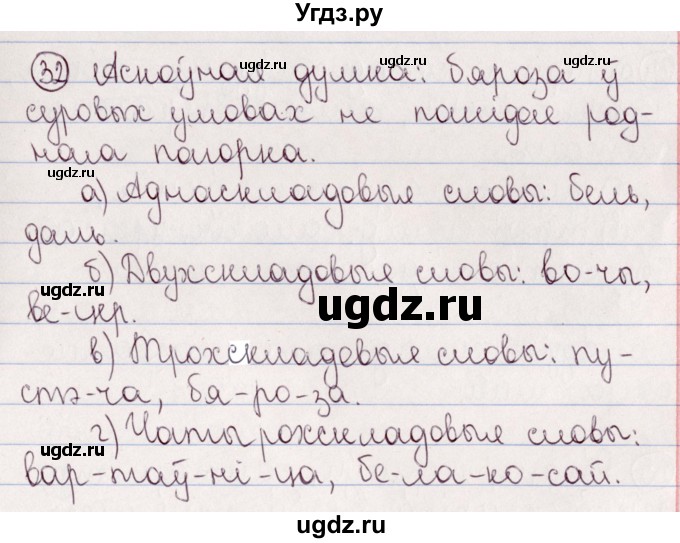 Угдз.ру
32 Асноўная думка: бяроза ў
суровых умовах не пакідае род-
нага пагорка.
а) Аднаскладовыя словы: бель,
даль.
б) Двухскладовыя словы: во-чы,
ве-цер.
в) Трохскладовыя словы: пу-
стэ-ча, бя-ро-за.
г) Чатырохскладовыя словы:
вар-таў-ні-ца, бе-ла-ко-сай.
ugdz.ru
ugdz.ru
ugdz.ru
ugdz.ru
ugdz.ru
ugdz.ru
ugdz.ru
ugdz.ru
ugdz.ru
ugdz.ru
ugdz.ru